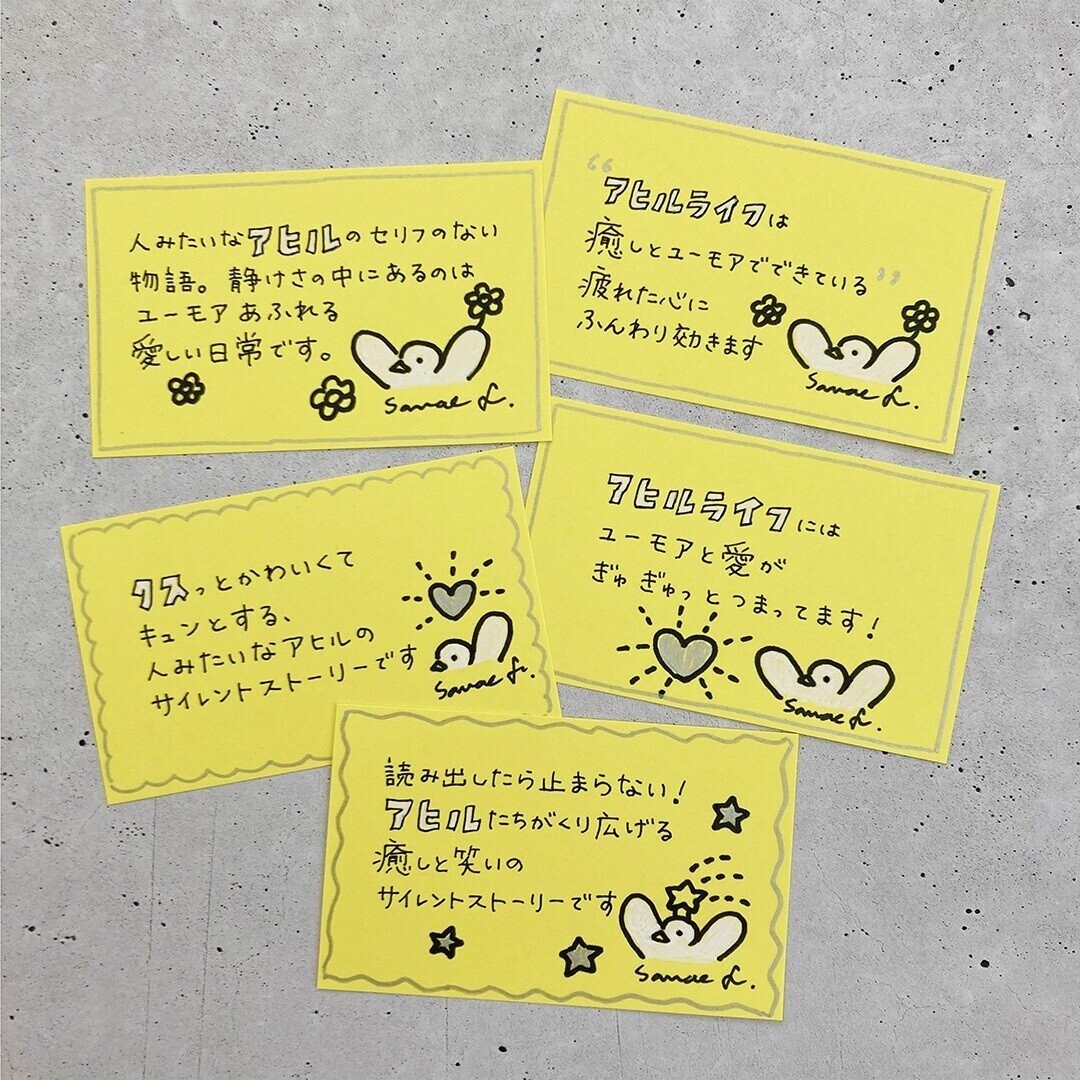 人みたいなアヒルのセリフのない
物語。静けさの中にあるのは
ユーモアあふれる
愛しい日常です。
Sanae f.
“アヒルライフは
癒しとユーモアでできている”
疲れた心に
ふんわり効きます
Sanae f.
クスっとかわいくて
キュンとする、
人みたいなアヒルの
サイレントストーリーです
Sanae f.
アヒルライフには
ユーモアと愛が
ぎゅぎゅっとつまってます!
Sanae f.
読み出したら止まらない!
アヒルたちがくり広げる
癒しと笑いの
サイレントストーリーです
Sanae f.